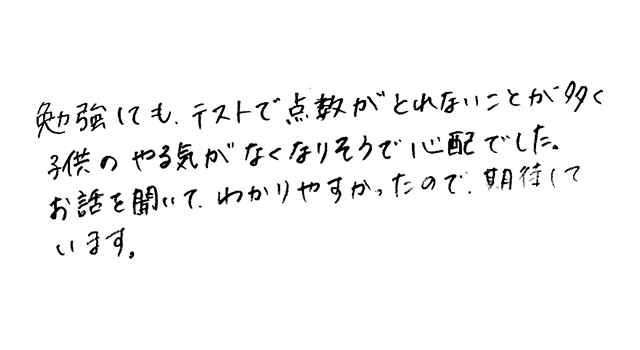 勉強しても、テストで点数がとれないことが多く
子供のやる気がなくなりそうで心配でした。
お話を聞いて、わかりやすかったので、期待して
います。